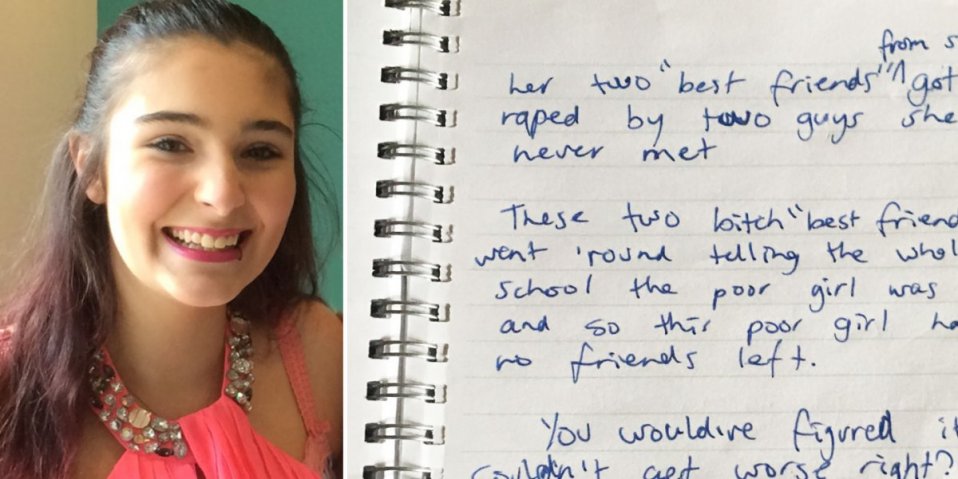 from s
her two "best friends" ^ got
raped by two guys she
never met
These two bitch "best friend
went 'round telling the whol
school the poor girl was
and so this poor girl ha
no friends left.
You would've figured it
couldn't get worse right?